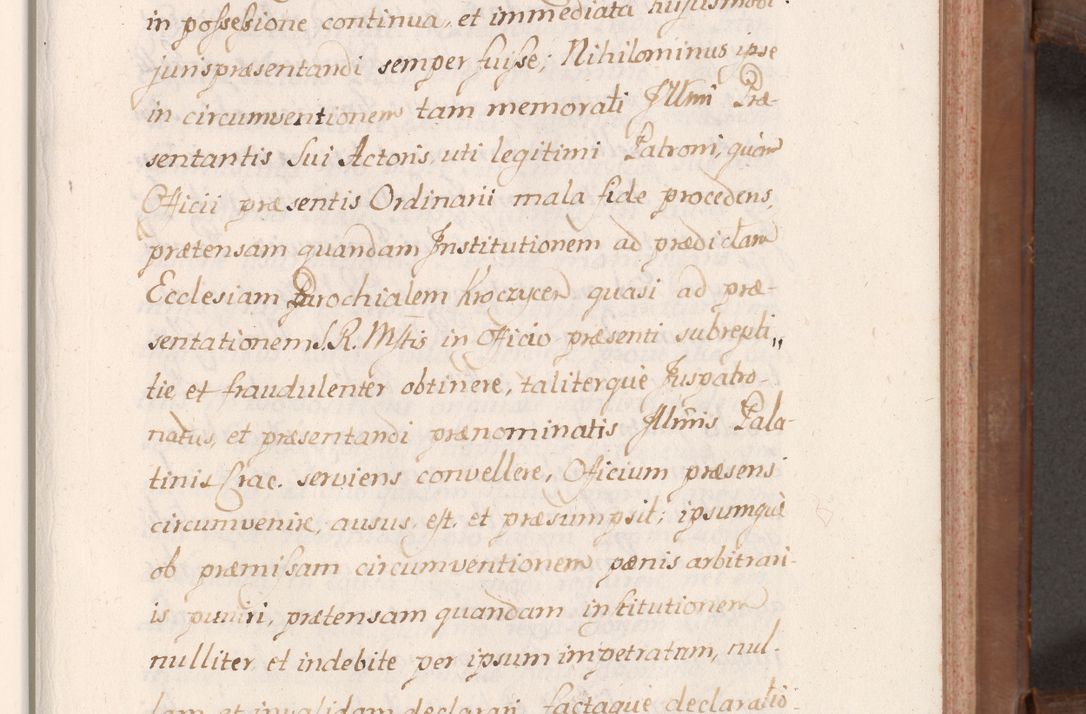 in possessione continua, et immediata hujusmodi
juris præsentandi semper fuisse; Nihilominus ipse
in circumventionem tam memorati Illmi Præ-
sentantis sui Actoris, uti legitimi Patroni, quàm
Officii præsentis Ordinarii mala fide procedens,
prætensam quandam Institutionem ad prædictam
Ecclesiam Parochialem Kroczycen quasi ad præ-
sentationem S. R. Mstis in Officio præsenti subrepti„
tie et fraudulenter obtinere, taliterquè Juspatro-
natus, et præsentandi prænominatis Illmis Pala-
tinis Crac. serviens convellere, Officium præsens
circumvenire, ausus est, et præsumpsit; ipsumquè
ob præmissam circumventionem pænis arbitrari-
is puniri, prætensam quandam institutionem
nulliter et indebite per ipsum impetratam, nul-
lam et invalidam declarari, factaque declaratio-